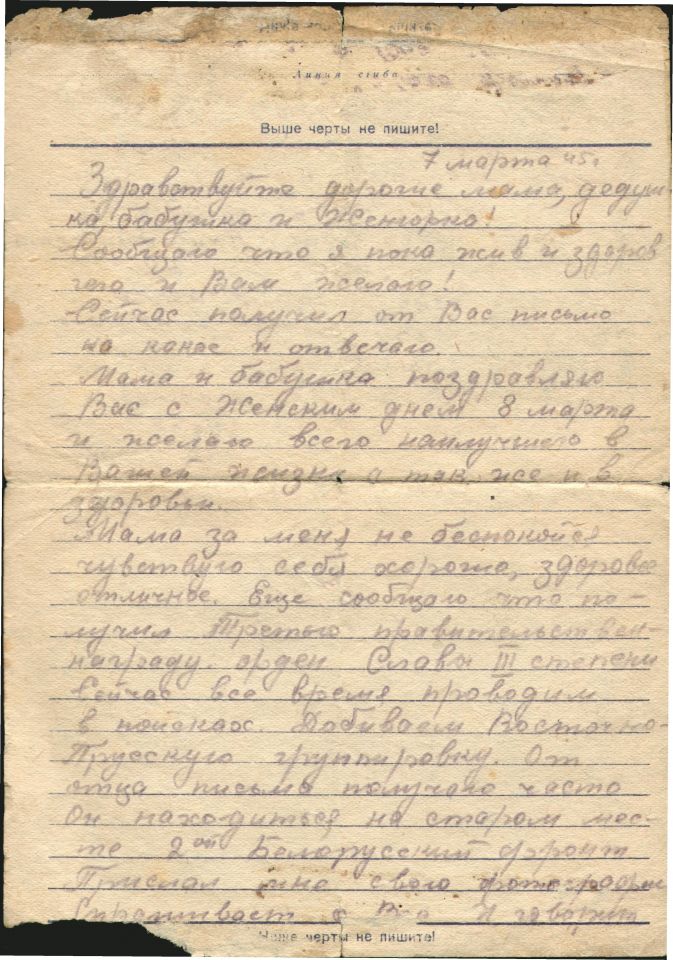 Линия сгиба
Выше черты не пишите!
7 марта 45 г
Здравствуйте дорогие мама, дедуш-
ка, бабушка и Женюрка!
Сообщаю что я пока жив и здоров
того и Вам желаю!
Сейчас получил от Вас письмо
на кокое и отвечаю.
Мама и бабушка поздравляю
Вас с Женским днем 8 марта
и желаю всего наилучшего в
Вашей жизни а так же и в
здоровьи.
Мама за меня не беспокойся
чувствую себя хорошо, здоровье
отличное. Еще сообщаю что по-
лучил Третью правительствен-
награду. орден Славы III степени
Сейчас все время проводим
в поисках Добиваем Восточно-
Прусскую группировку. От
отца письма получаю часто
Он находиться на старом мес-
те 2ой Белорусский фронт
Прислал мне свою фотографи
Спрашивает о Вас и говорит
Ниже черты не пишите!